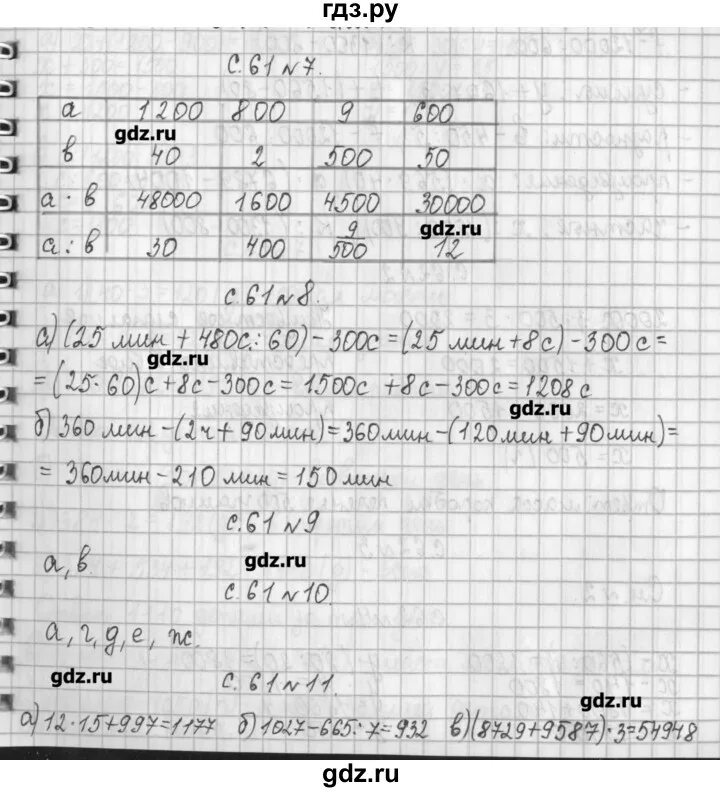 гдз.ру
с.61 №7.
а 1200 800 9 600
gdz.ru
в 40 2 500 50
а · в 48000 1600 4500 30000
gdz.ru
а : в 30 400 9/500 12
с.61 №8.
а) (25 мин + 480с : 60) – 300с = (25 мин + 8с) – 300с =
gdz.ru
= (25 · 60)с + 8с – 300с = 1500с + 8с – 300с = 1208 с
gdz.ru
б) 360 мин – (2ч + 90мин) = 360мин – (120мин + 90мин) =
= 360мин – 210 мин = 150 мин
с.61 №9
gdz.ru
а, в.
с.61 №10.
а, г, д, е, ж.
gdz.ru
с.61 №11.
gdz.ru
а) 12·15+997=1177 б) 1027–665:7=932 в) (8729+9587)·3=54948
gdz.ru